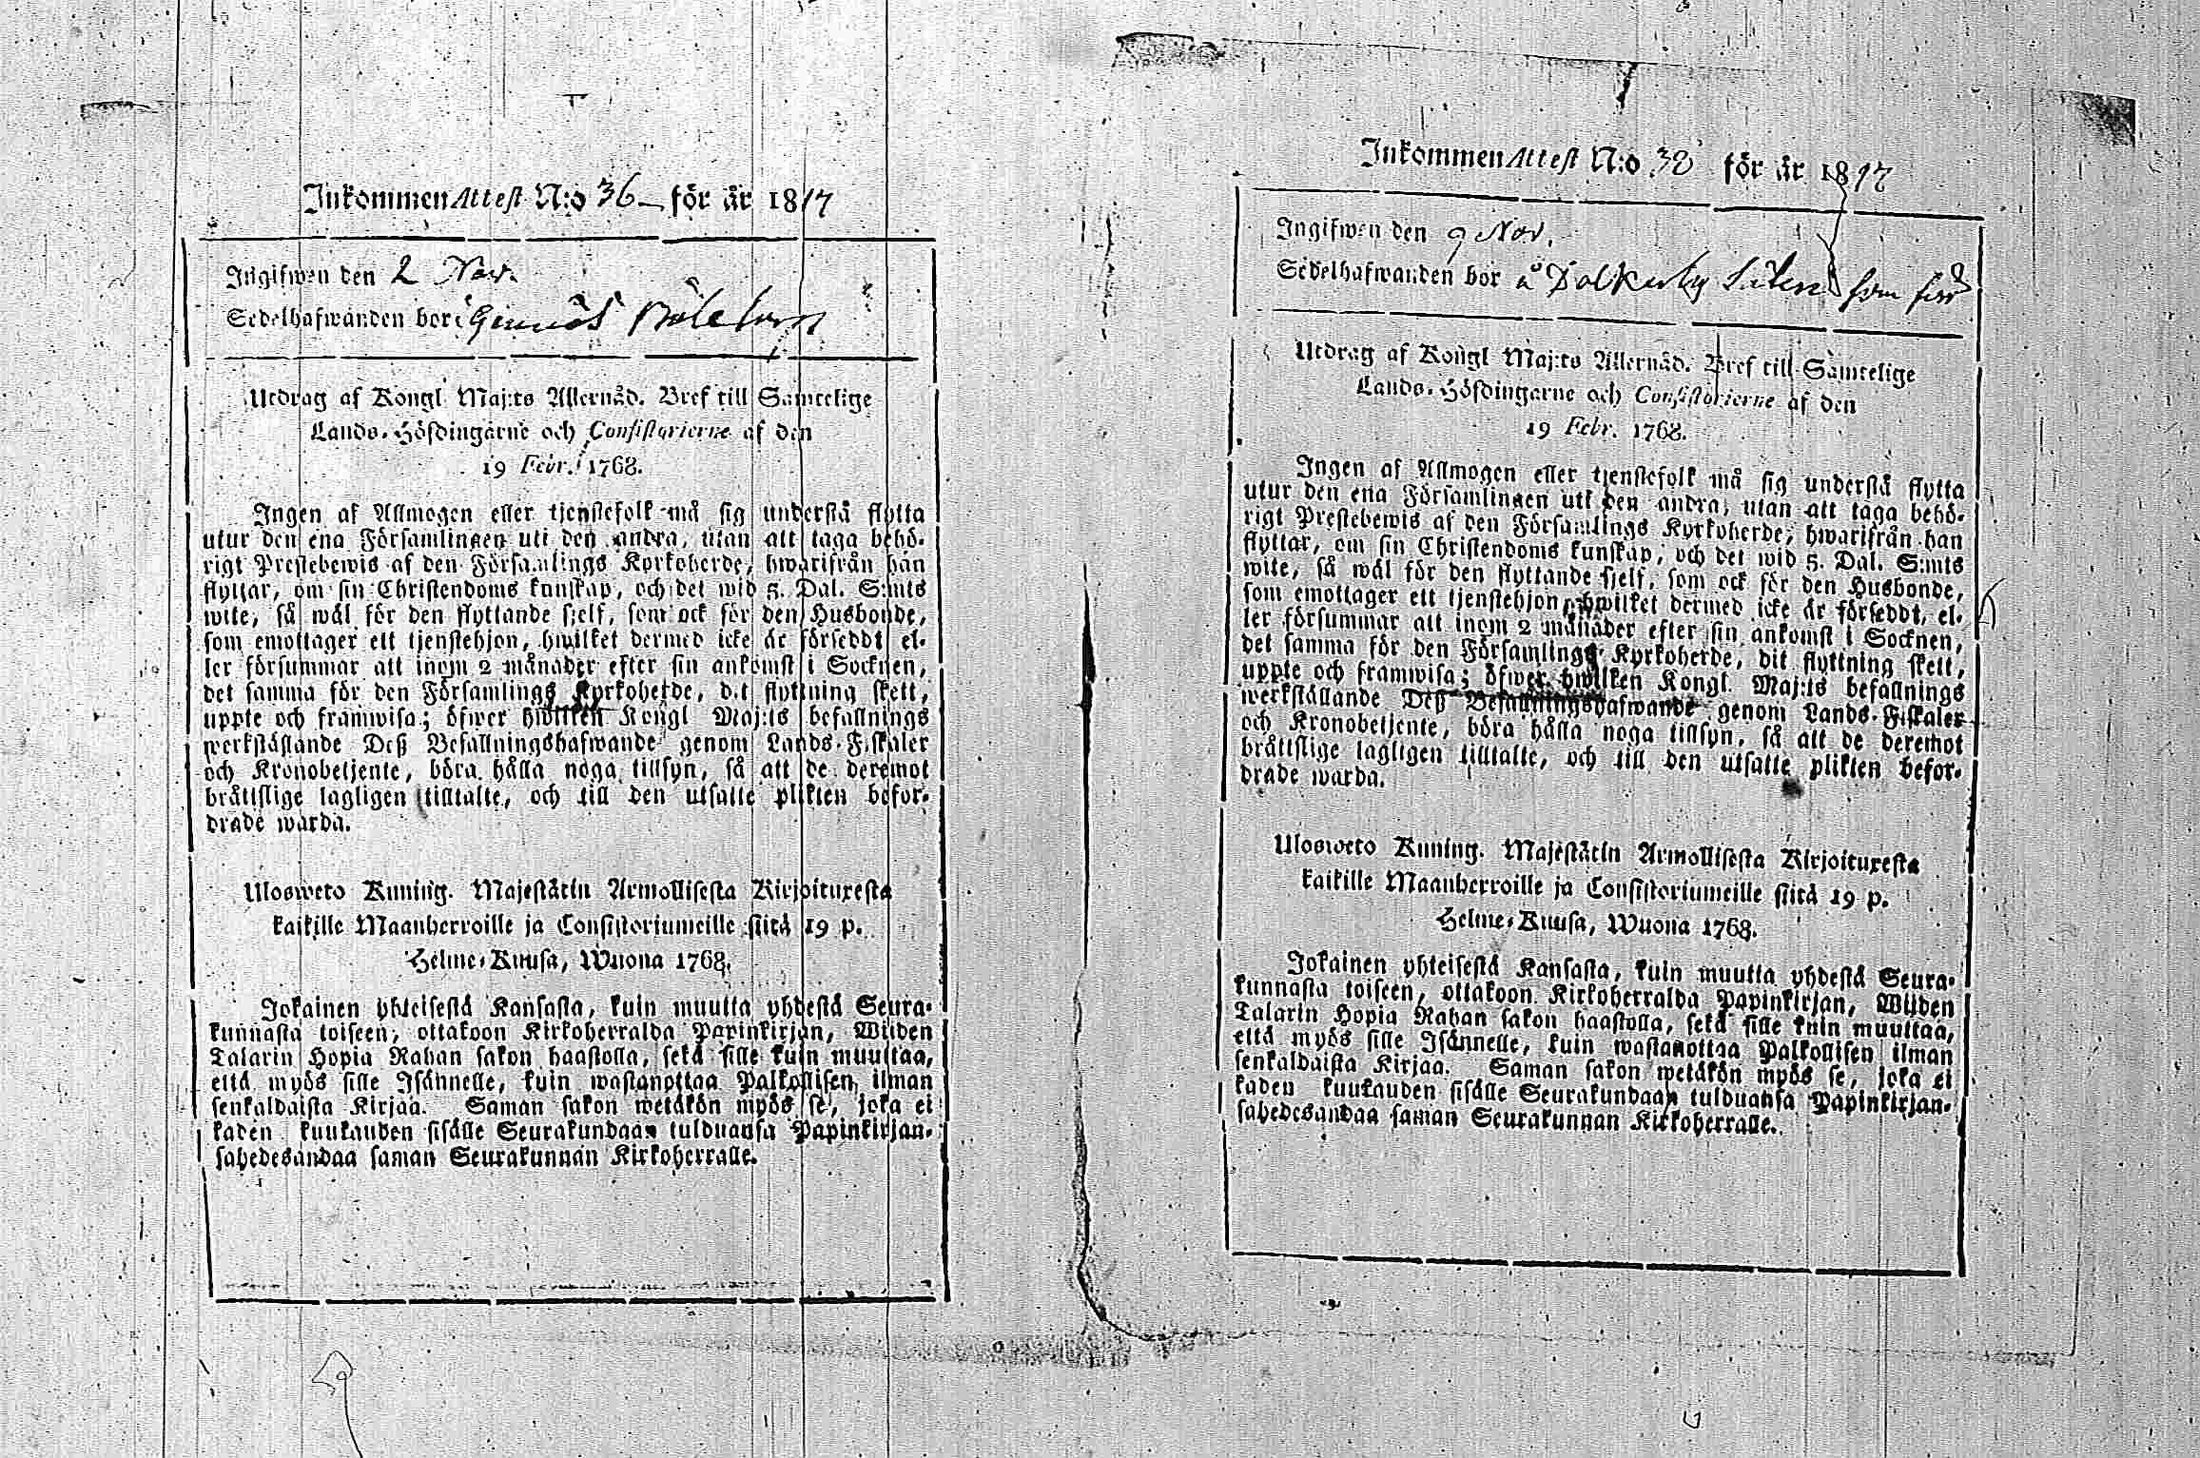 Inkommen Attest N:o 36 för år 1817
Ingifwen den 2 Nov.
Sedelhafwanden bor i
Utdrag af Kongl Maj:ts Allernåd. Bref till Samtelige
Lands-Höfdingarne och Consistorierne af den
19 Febr. 1768.
Ingen af Allmogen eller tjenstefolk må sig understå flytta
utur den ena Församlingen uti den andra, utan att taga behö-
rigt Prestebewis af den Församlings Kyrkoherde, hwarifrån han
flyttar, om sin Christendoms kunskap, och det wid 5. Dal. S:mts
wite, så wäl för den flyttande sjelf, som ock för den Husbonde,
som emottager ett tjenstehjon, hwilket dermed icke är försedt el-
ler försummar att inom 2 månader efter sin ankomst i Socknen,
det samma för den Församlings Kyrkoherde, dit flyttning skett,
uppte och framwisa; öfwer hwilken Kongl Maj:ts befallnings
werkställande Deß Befallningshafwande genom Lands-Fiskaler
och Kronobetjente, böra hålla noga tillsyn, så att de deremot
bråttslige lagligen tilltalte, och till den utsatte plikten befor-
drade warda.
Ulosweto Kuning. Majestätin Armollisesta Kirjoituxesta
kaikille Maanherroille ja Consistoriumeille siitä 19 p.
Helme-Kuusa, Wuona 1768.
Jokainen yhteisestä Kansasta, kuin muutta yhdestä Seura-
kunnasta toiseen, ottakoon Kirkoherralda Papinkirjan, Wiiden
Talarin Hopia Rahan sakon haastolla, sekä sille kuin muuttaa,
että myös sille Isännelle, kuin wastanottaa Palkollisen ilman
senkaldaista Kirjaa. Saman sakon wetäkön myös se, joka ei
kaden kuukauden sisälle Seurakundaan tulduansa Papinkirjan-
sahedesandaa saman Seurakunnan Kirkoherralle.
Inkommen Attest N:o 38 för år 1817
Ingifwen den 9 Nov.
Sedelhafwanden bor å Dalkarby som
Utdrag af Kongl Maj:ts Allernåd. Bref till Samtelige
Lands-Höfdingarne och Consistorierne af den
19 Febr. 1768.
Ingen af Allmogen eller tjenstefolk må sig understå flytta
utur den ena Församlingen uti den andra, utan att taga behö-
rigt Prestebewis af den Församlings Kyrkoherde, hwarifrån han
flyttar, om sin Christendoms kunskap, och det wid 5. Dal. S:mts
wite, så wäl för den flyttande sjelf, som ock för den Husbonde,
som emottager ett tjenstehjon, hwilket dermed icke är försedt, el-
ler försummar att inom 2 månader efter sin ankomst i Socknen,
det samma för den Församlings Kyrkoherde, dit flyttning skett,
uppte och framwisa; öfwer hwilken Kongl. Maj:ts befallnings
werkställande Deß Befallningshafwande genom Lands-Fiskaler
och Kronobetjente, böra hålla noga tillsyn, så att de deremot
bråttslige lagligen tilltalte, och till den utsatte plikten befor-
drade warda.
Ulosweto Kuning. Majestätin Armollisesta Kirjoituxesta
kaikille Maanherroille ja Consistoriumeille siitä 19 p.
Helme-Kuusa, Wuona 1768.
Jokainen yhteisestä Kansasta, kuin muutta yhdestä Seura-
kunnasta toiseen, ottakoon Kirkoherralda Papinkirjan, Wiiden
Talarin Hopia Rahan sakon haastolla, sekä sille kuin muuttaa,
että myös sille Isännelle, kuin wastanottaa Palkollisen ilman
senkaldaista Kirjaa. Saman sakon wetäkön myös se, joka ei
kaden kuukauden sisälle Seurakundaan tulduansa Papinkirjan-
sahedesandaa saman Seurakunnan Kirkoherralle.